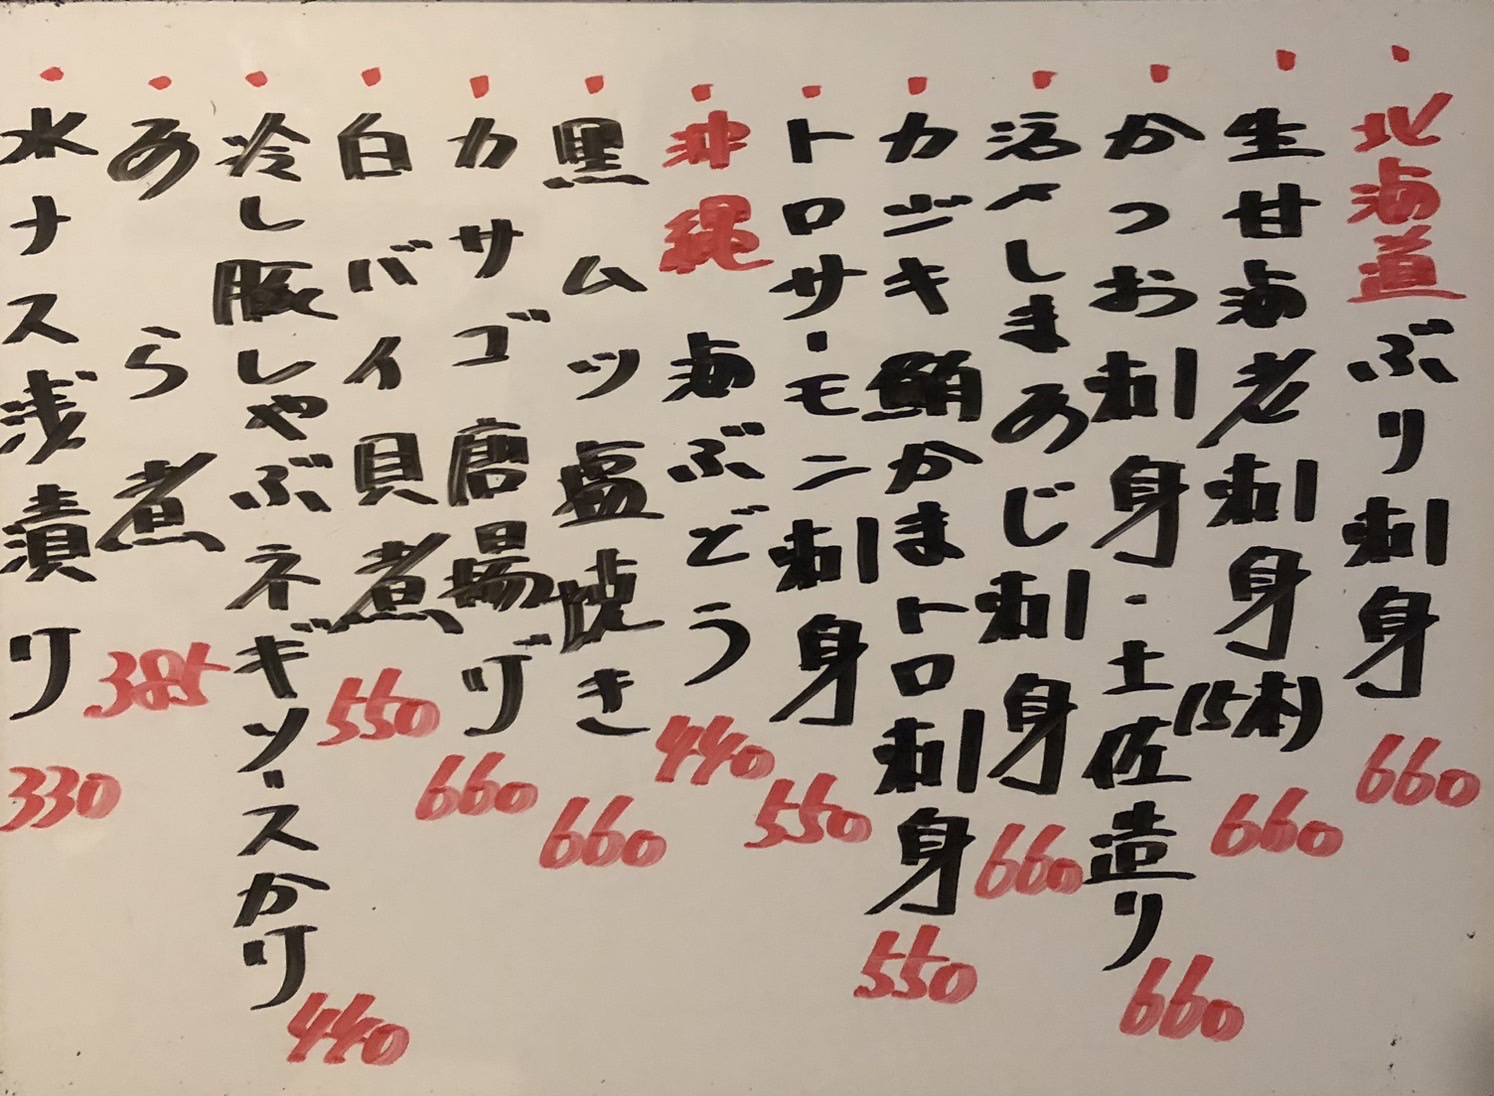 ・北海道ぶり刺身 660
・生甘海老刺身(5本) 660
・かつお刺身・土佐造り 660
・活〆しまあじ刺身 660
・カジキ鮪かまトロ刺身 550
・トロサーモン刺身 550
・沖縄海ぶどう 440
・黒ムツ塩焼き 660
・カサゴ唐揚げ 660
・白バイ貝煮 550
・冷し豚しゃぶネギソースかけ 440
・あら煮 385
・水ナス浅漬け 330